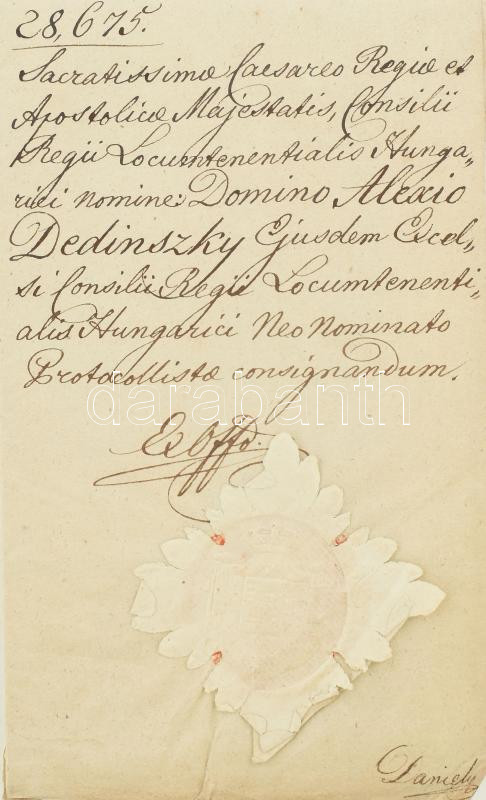 28,675.
Sacratissimæ Caesareo Regiæ et
Apostolicæ Majestatis, Consilii
Regii Locumtenentialis Hunga„
rici nomine: Domino Alexio
Dedinszky Ejusdem Excel„
si Consilii Regii Locumtenenti„
alis Hungarici Neo Nominato
Protocollistæ consignandum.
darabanth
Ex Offo.
Daniely